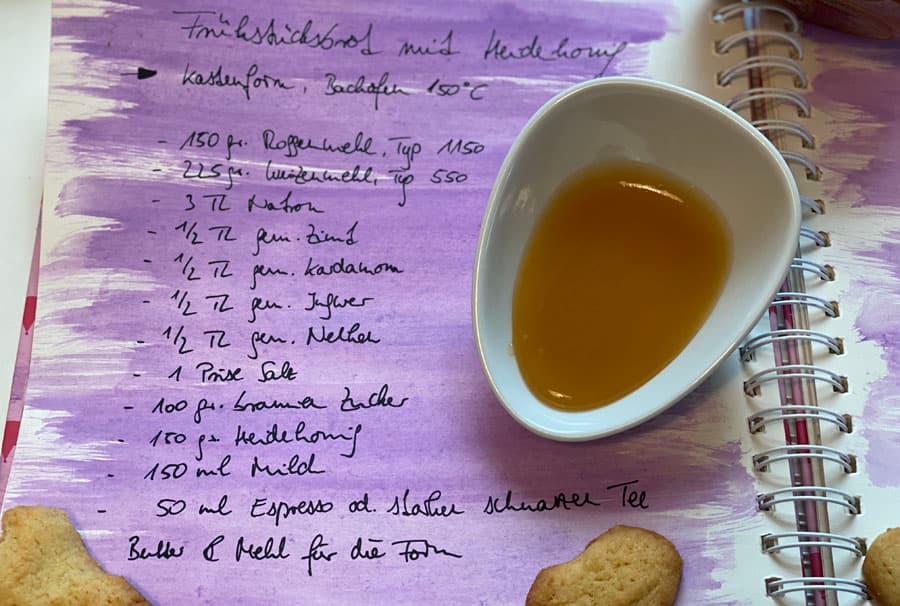 Frühstücksbrot mit Heidehonig
Kastenform, Backofen 150°C
- 150 gr. Roggenmehl, Typ 1150
- 225 gr. Weizenmehl, Typ 550
- 3 TL Natron
- 1/2 TL gem. Zimt
- 1/2 TL gem. Kardamom
- 1/2 TL gem. Ingwer
- 1/2 TL gem. Nelken
- 1 Prise Salz
- 100 gr. brauner Zucker
- 150 gr. Heidehonig
- 150 ml Milch
- 50 ml Espresso od. starker schwarzer Tee
Butter & Mehl für die Form